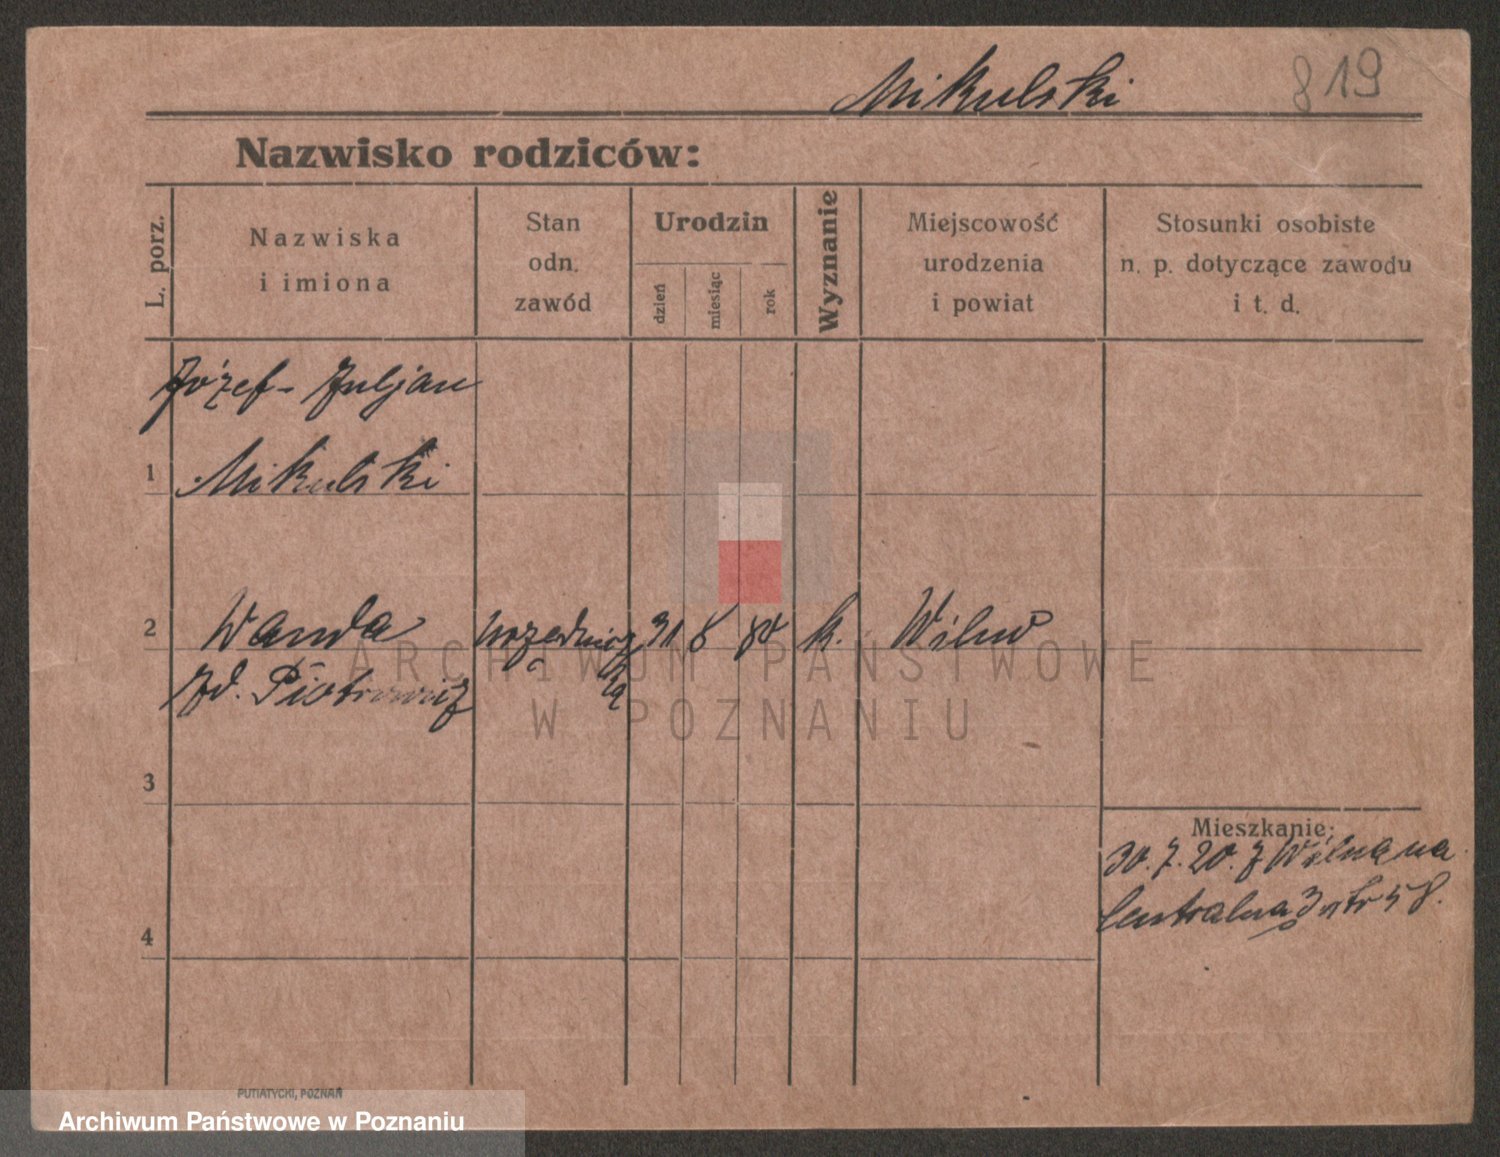 Mikulski 819
Nazwisko rodziców:
L. porz.
Nazwiska
i imiona
Stan
odn.
zawód
Urodzin
dzień
miesiąc
rok
Wyznanie
Miejscowość
urodzenia
i powiat
Stosunki osobiste
n. p. dotyczące zawodu
i t. d.
Józef-Juljan
1 Mikulski
2 Wanda urzędnicz 31 8 84 k. Wilno
ka
Zd. Piotrowicz
3
4
Mieszkanie:
30.7.20. z Wilna na
Centralna 3 ptr 58.
ARCHIWUM PAŃSTWOWE
W POZNANIU
PUTIATYCKI, POZNAŃ
Archiwum Państwowe w Poznaniu